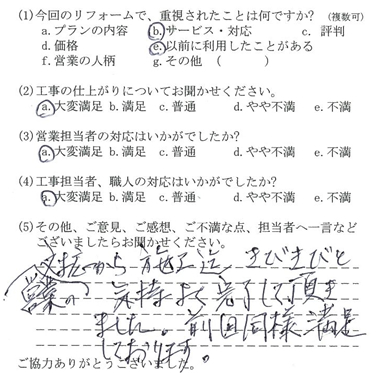 (1)今回のリフォームで、重視されたことは何ですか? (複数可)
a.プランの内容 b.サービス・対応 c. 評判
d.価格 e.以前に利用したことがある
f.営業の人柄 g.その他 ( )
(2)工事の仕上がりについてお聞かせください。
a.大変満足 b.満足 c.普通 d.やや不満 e.不満
(3)営業担当者の対応はいかがでしたか?
a.大変満足 b.満足 c.普通 d.やや不満 e.不満
(4)工事担当者、職人の対応はいかがでしたか?
a.大変満足 b.満足 c.普通 d.やや不満 e.不満
(5)その他、ご意見、ご感想、ご不満な点、担当者へ一言など
ございましたらお聞かせください。
から 施工迄 きびきびと
営業の 気持よく完了して頂き
ました。前回同様満足
しております。
ご協力ありがとうございました。